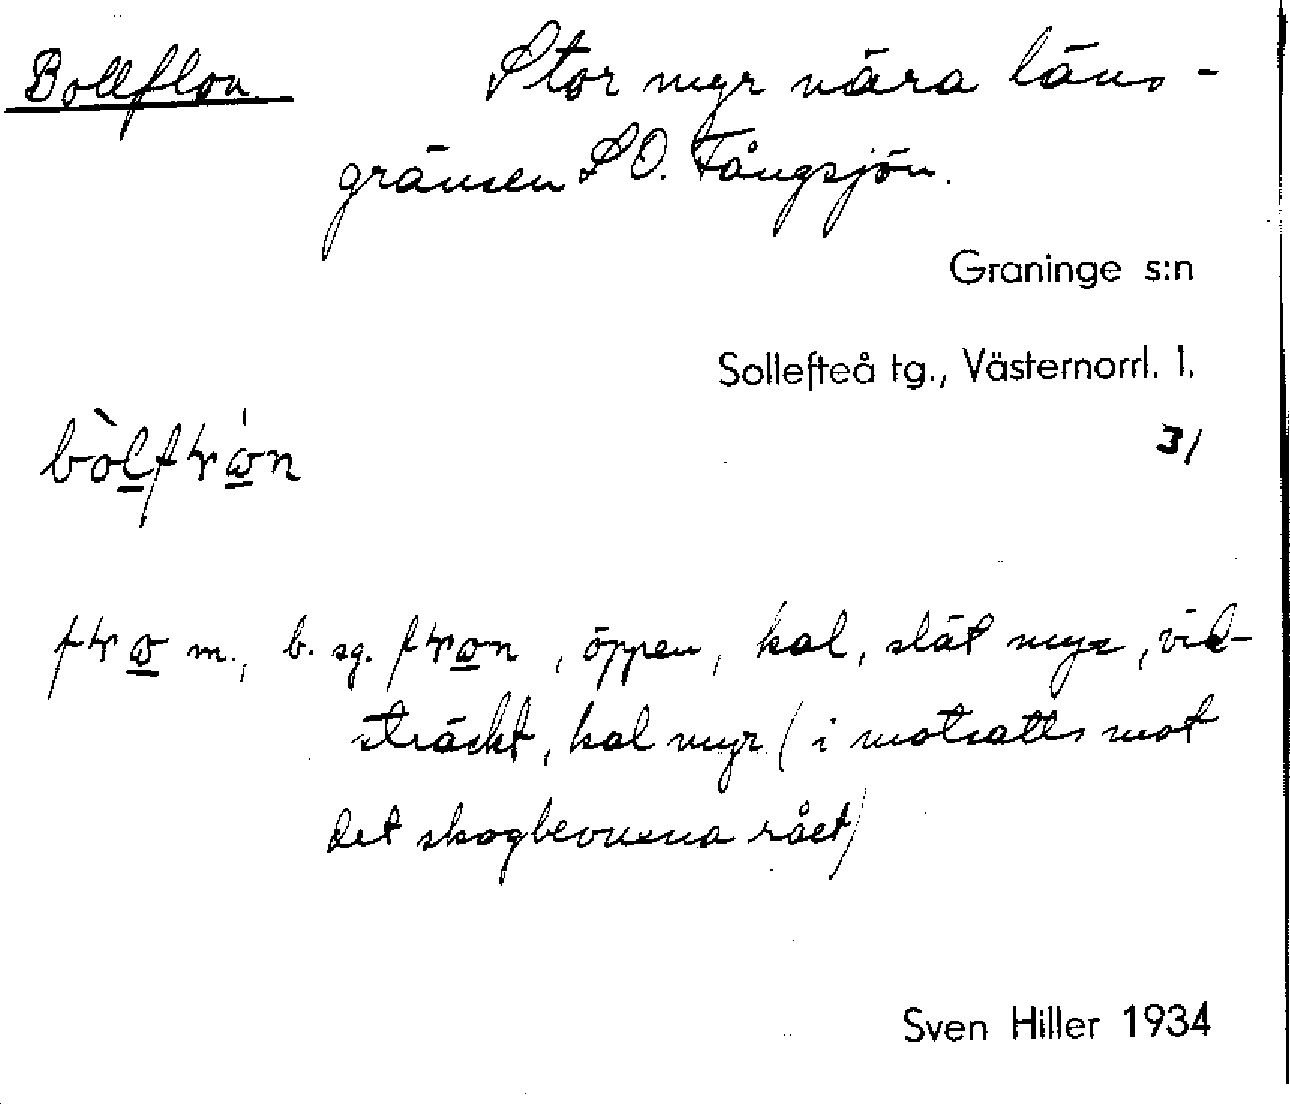 Bollflon Stor myr nära läns-
gränsen SO. Tångsjön.
Graninge s:n
Sollefteå tg., Västernorrl. l.
31
m., b. sg. , öppen, kal, slät myr, vid-
sträckt, kal myr (i motsatts mot
det skogbevuxna rået)
Sven Hiller 1934